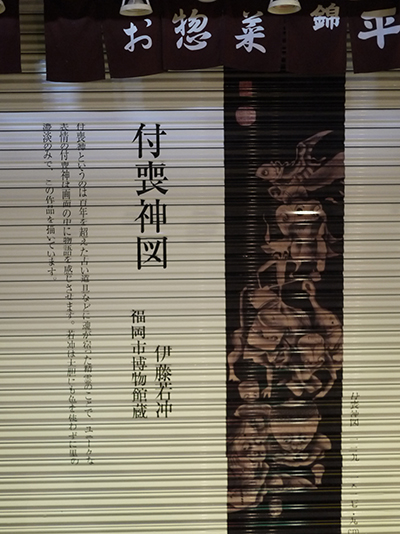 お惣菜 錦平
付喪神図
伊藤若冲
福岡市博物館蔵
付喪神というのは百年を超えた古い道具などに魂が宿った精霊のことで、ユニークな
表情の付喪神は画面の中に物語を感じさせます。若冲は大胆にも色を使わずに墨の
濃淡のみで、この作品を描いています。
付喪神図